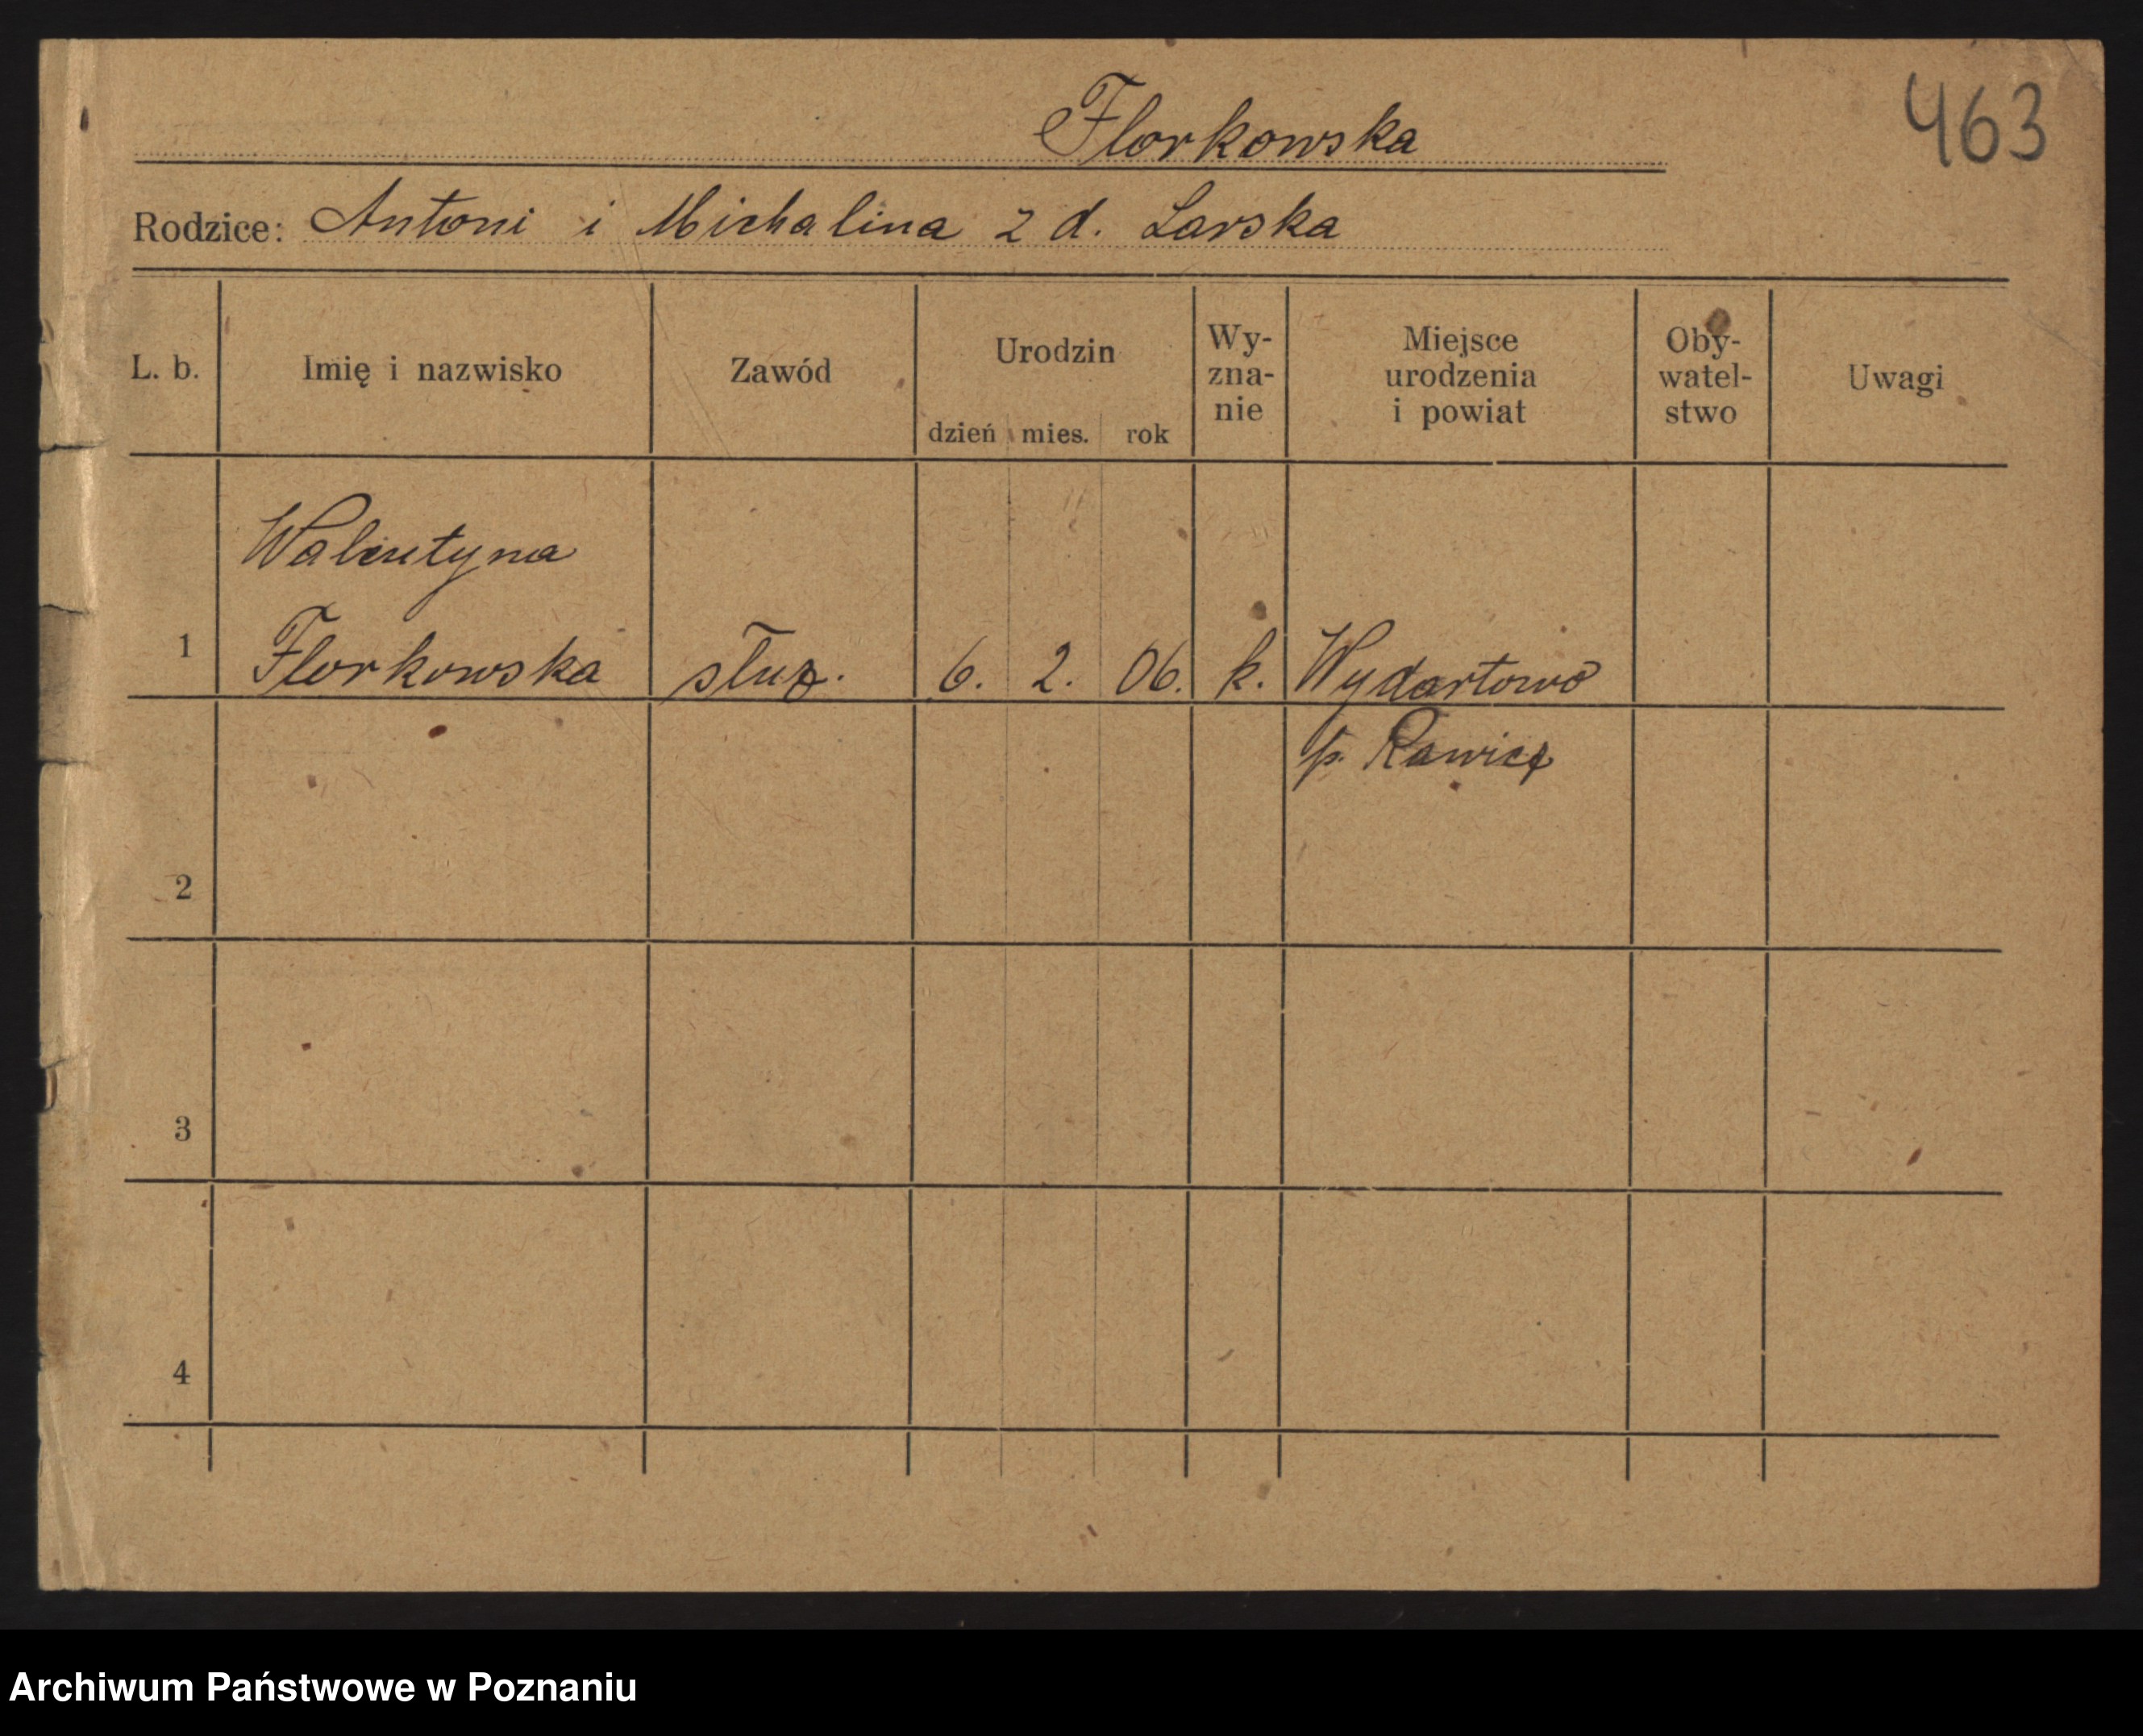 Florkowska
463
Rodzice: Antoni i Michalina z d. Larska
L. b.
Imię i nazwisko
Zawód
Urodzin
dzień mies. rok
Wy-
zna-
nie
Miejsce
urodzenia
i powiat
Oby-
watel-
stwo
Uwagi
Walentyna
1 Florkowska służ. 6. 2. 06. k. Wydartowo
p. Rawicz
2
3
4
Archiwum Państwowe w Poznaniu